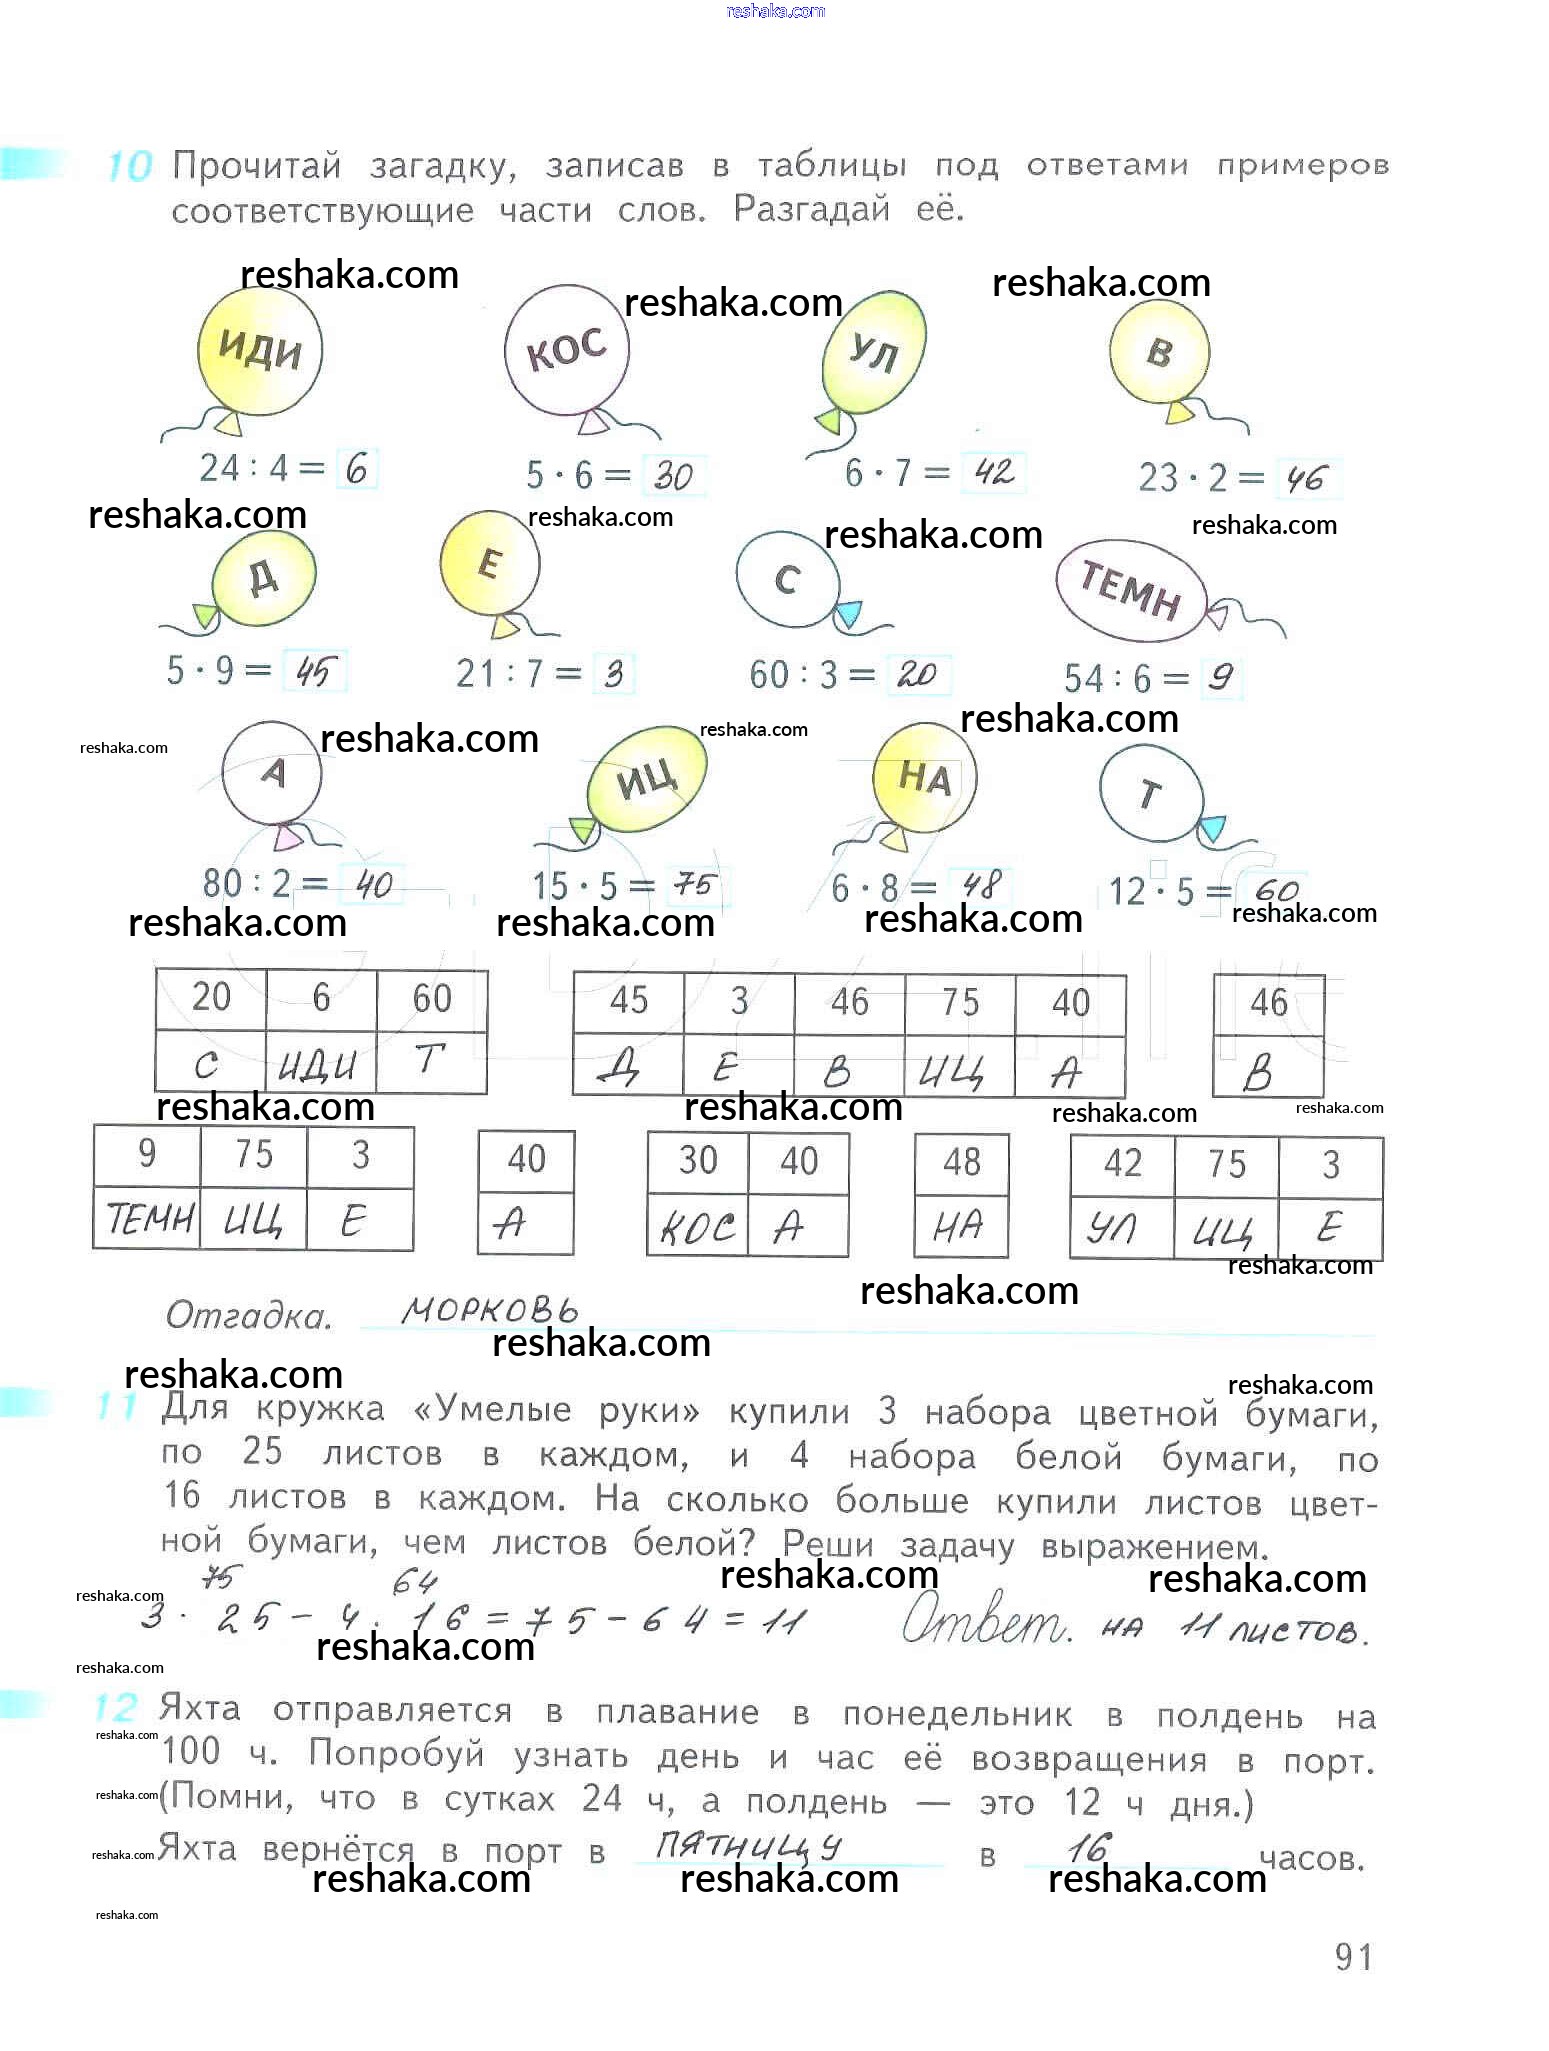 reshaka.com
10 Прочитай загадку, записав в таблицы под ответами примеров
соответствующие части слов. Разгадай её.
reshaka.com reshaka.com reshaka.com
ИДИ КОС УЛ В
24 : 4 = 6 5 · 6 = 30 6 · 7 = 42 23 · 2 = 46
reshaka.com reshaka.com reshaka.com reshaka.com
Д Е С ТЕМН
5 · 9 = 45 21 : 7 = 3 60 : 3 = 20 54 : 6 = 9
reshaka.com reshaka.com reshaka.com reshaka.com
А ИЦ НА Т
80 : 2 = 40 15 · 5 = 75 6 · 8 = 48 12 · 5 = 60
reshaka.com reshaka.com reshaka.com reshaka.com
20 6 60 45 3 46 75 40 46
С ИДИ Т Д Е В ИЦ А В
reshaka.com reshaka.com reshaka.com reshaka.com
9 75 3 40 30 40 48 42 75 3
ТЕМН ИЦ Е А КОС А НА УЛ ИЦ Е
reshaka.com reshaka.com
Отгадка. МОРКОВЬ
reshaka.com
reshaka.com reshaka.com
11 Для кружка «Умелые руки» купили 3 набора цветной бумаги,
по 25 листов в каждом, и 4 набора белой бумаги, по
16 листов в каждом. На сколько больше купили листов цвет-
ной бумаги, чем листов белой? Реши задачу выражением.
75 64
reshaka.com reshaka.com reshaka.com
3 · 25 – 4 · 16 = 75 – 64 = 11 Ответ. на 11 листов.
reshaka.com
reshaka.com
12 Яхта отправляется в плавание в понедельник в полдень на
reshaka.com
100 ч. Попробуй узнать день и час её возвращения в порт.
reshaka.com
(Помни, что в сутках 24 ч, а полдень — это 12 ч дня.)
reshaka.com
Яхта вернётся в порт в ПЯТНИЦУ в 16 часов.
reshaka.com reshaka.com reshaka.com
reshaka.com
91